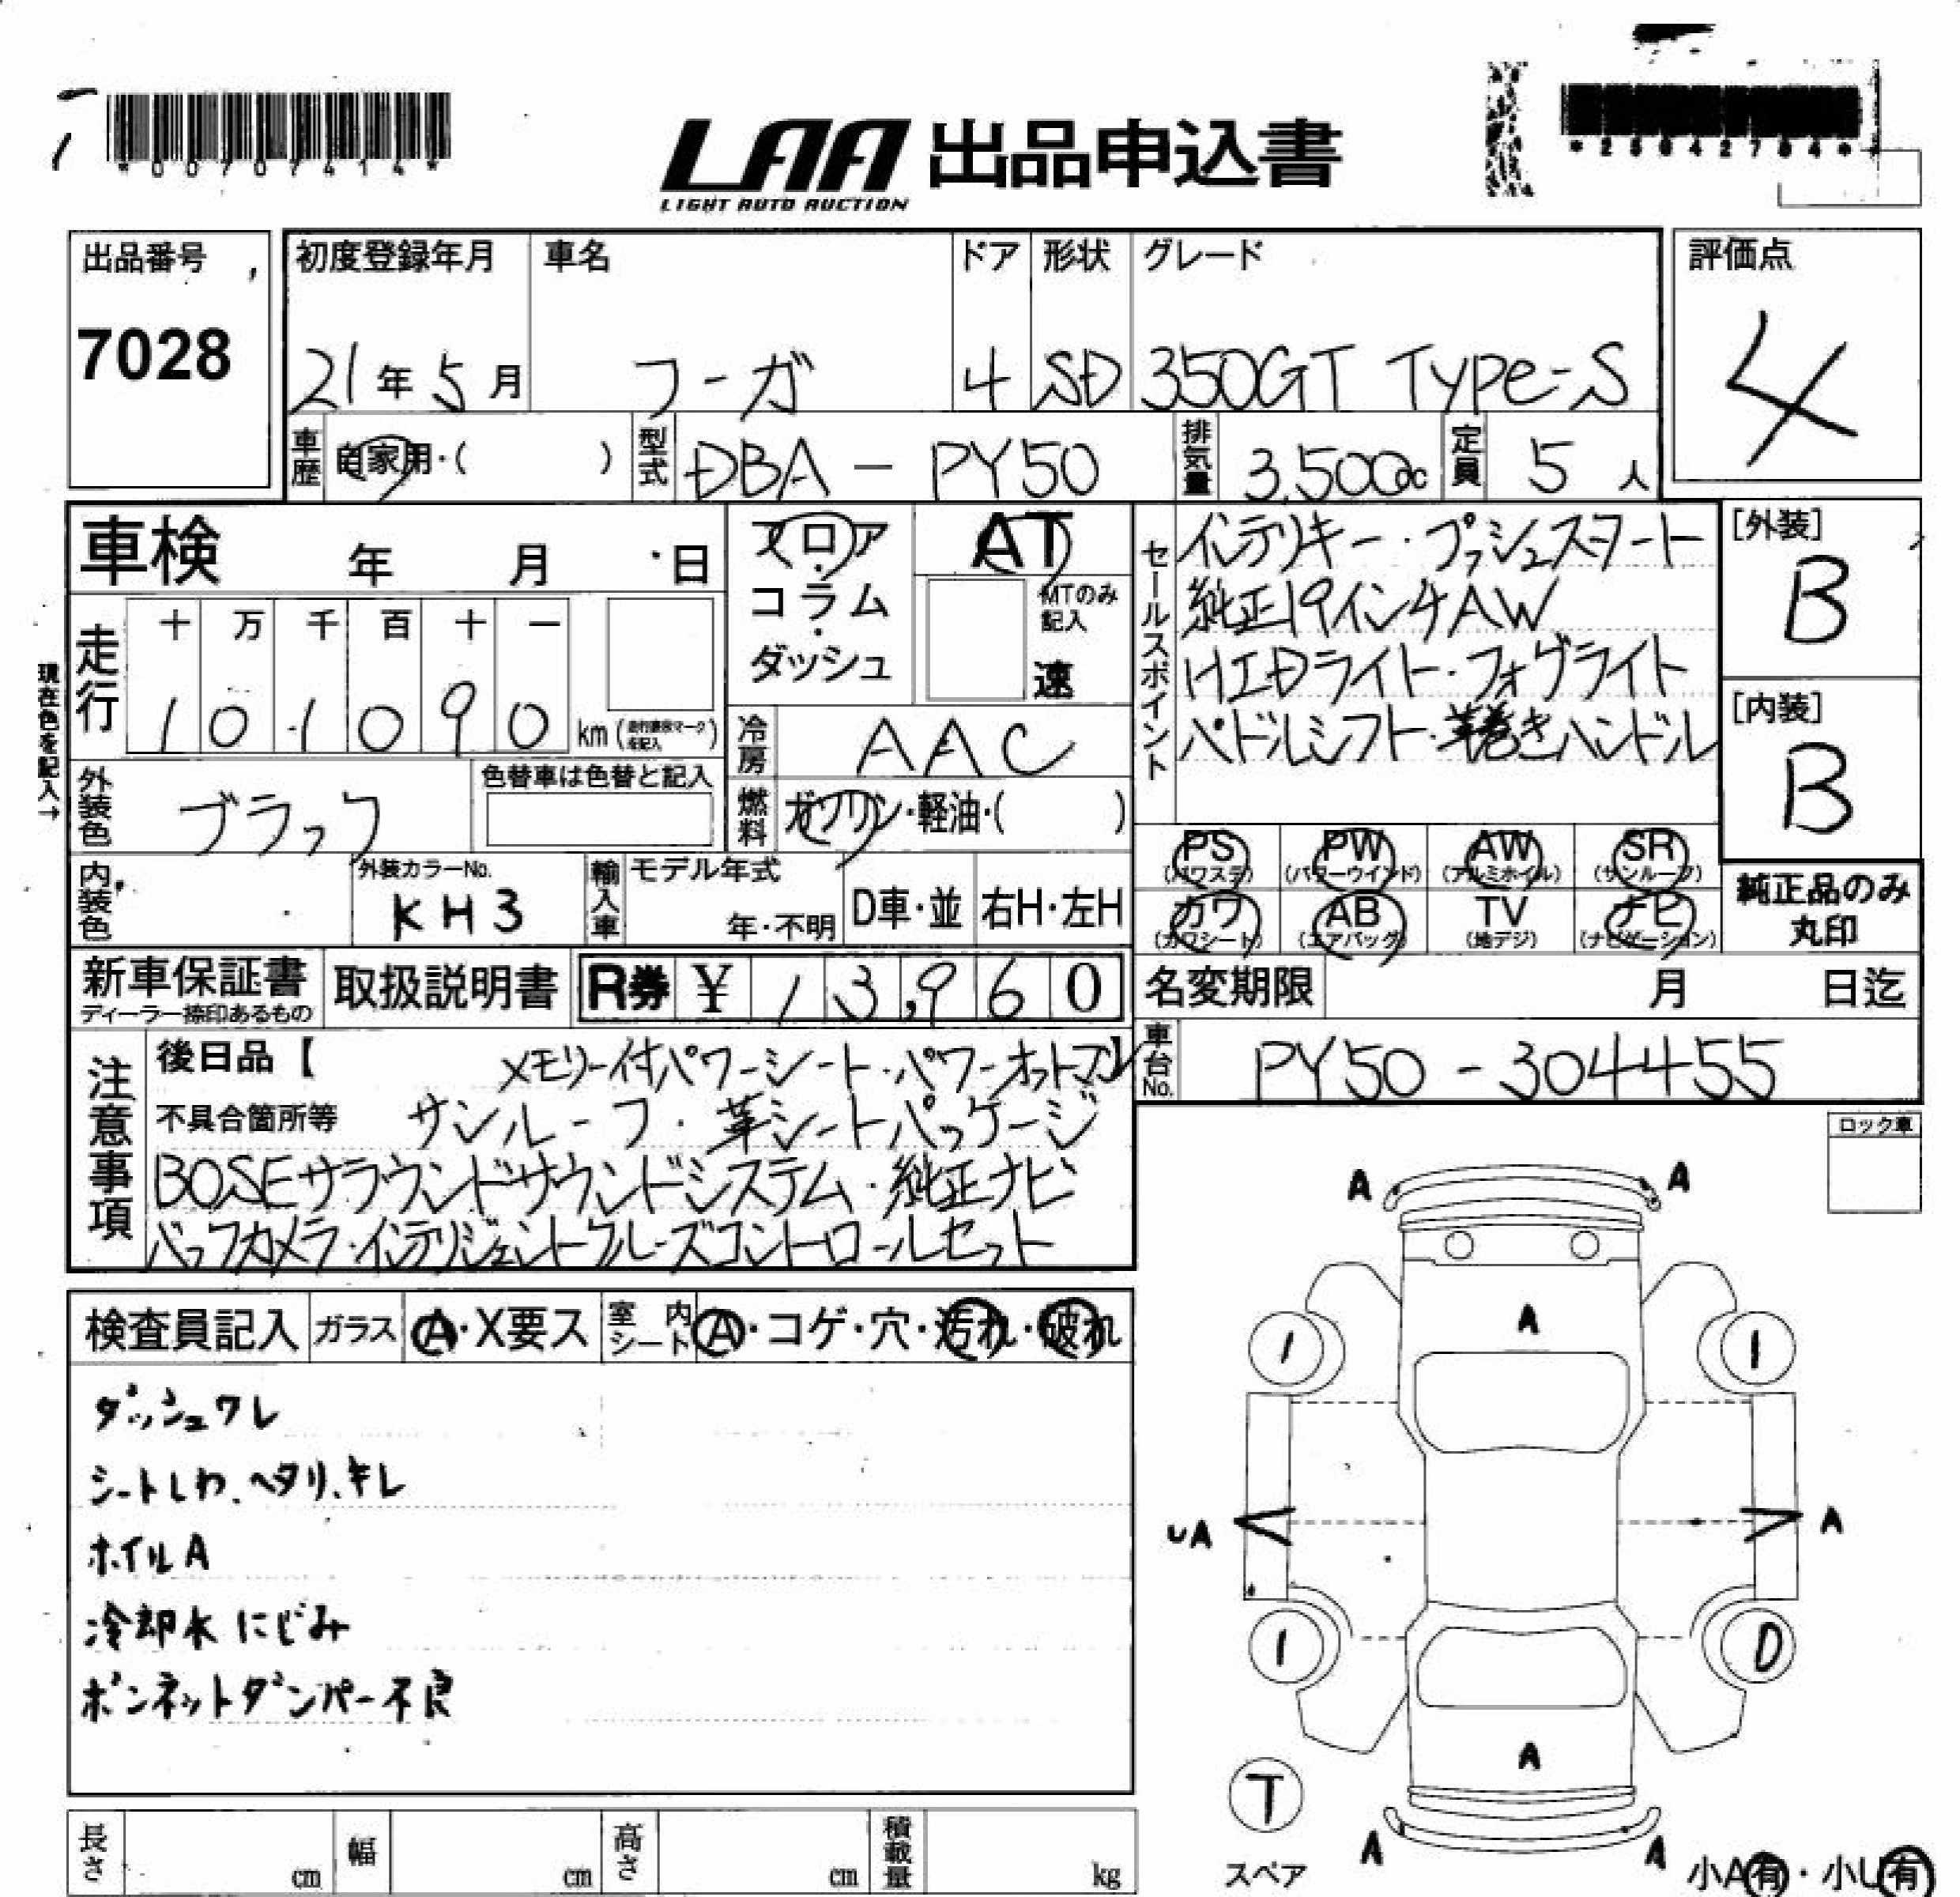 *00707414*
LAA 出品申込書
LIGHT AUTO AUCTION
出品番号
7028
初度登録年月 車名 ドア 形状 グレード
21年5月 フーガ 4 SD 350GT Type-S
評価点
4
車歴 自家用・( ) 型式 DBA - PY50 排気量 3,500cc 定員 5人
車検 年 月 日
フロア・コラム・ダッシュ
AT
MTのみ記入
速
セールスポイント
インテリキー・プッシュスタート
純正19インチAW
HIDライト・フォグライト
パドルシフト・革巻きハンドル
[外装]
B
[内装]
B
現在色を記入→
走行 十 万 千 百 十 一
1 0 1 0 9 0 km
冷房 AAC
外装色 ブラック
色替車は色替と記入
燃料 ガソリン・軽油・( )
内装色
外装カラーNo.
KH3
輸入車 モデル年式
年・不明 D車・並 右H・左H
PS (パワステ) PW (パワーウインド) AW (アルミホイル) SR (サンルーフ)
カワ (カワシート) AB (エアバッグ) TV (地デジ) ナビ (ナビゲーション)
純正品のみ
丸印
新車保証書
ディーラー捺印あるもの
取扱説明書 R券 ¥ 13,960
名変期限 月 日迄
車台No. PY50-304455
注意事項
後日品【 メモリー付パワーシート・パワーオットマン】
不具合箇所等 サンルーフ・革シートパッケージ
BOSEサラウンドサウンドシステム・純正ナビ
バックカメラ・インテリジェントクルーズコントロールセット
ロック車
検査員記入 ガラス A・X要ス 室内シート A・コゲ・穴・汚れ・破れ
ダッシュワレ
シートしわ、ヘタリ、キレ
ホイルA
冷却水 にじみ
ボンネットダンパー不良
A A
A
1 1
UA A
1 D
A
T
スペア
A A
小A有・小U有
長さ cm 幅 cm 高さ cm 積載量 kg